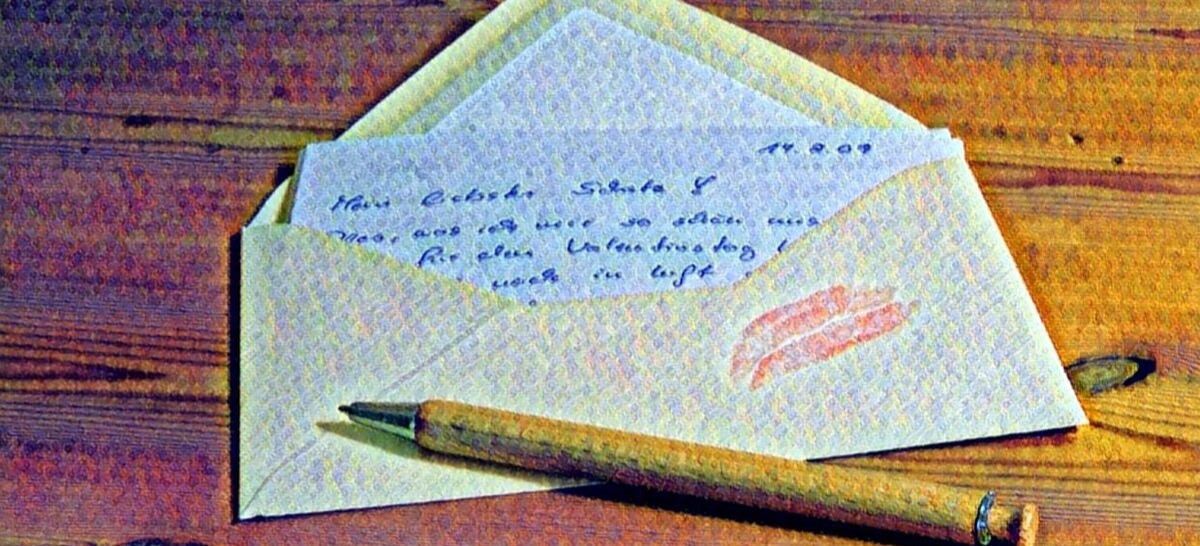 14.2.09
Mein liebster Schatz
was ich mir so schön
für den Valentinstag
noch in Luft